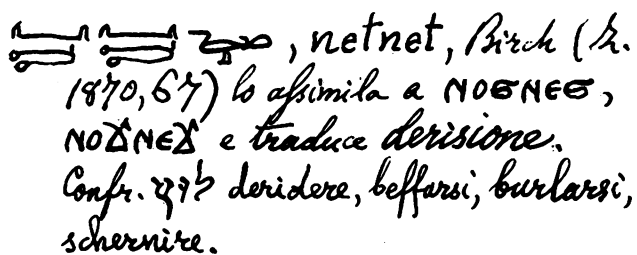 , netnet, Birch (Z.
1870, 67) lo aſsimila a ⲛⲟϭⲛⲉϭ,
ⲛⲟϫⲛⲉϫ e traduce derisione.
Confr. deridere, beffarsi, burlarsi,
schernire.